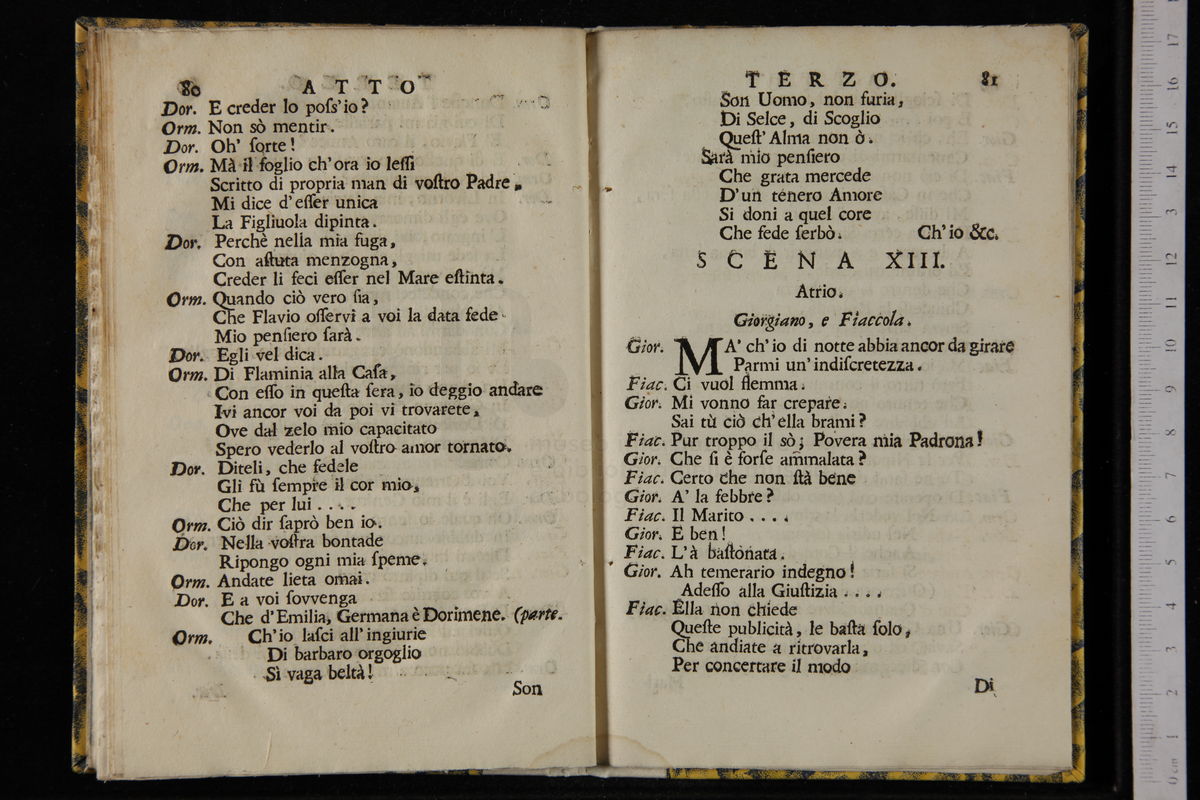 80 ATTO
Dor. E creder lo poſs'io?
Orm. Non sò mentir.
Dor. Oh' ſorte!
Orm. Mà il foglio ch'ora io leſſi
Scritto di propria man di voſtro Padre,
Mi dice d'eſſer unica
La Figliuola dipinta.
Dor. Perchè nella mia fuga,
Con aſtuta menzogna,
Creder li feci eſſer nel Mare eſtinta.
Orm. Quando ciò vero ſia,
Che Flavio oſſervi a voi la data fede
Mio penſiero ſarà.
Dor. Egli vel dica.
Orm. Di Flaminia alla Caſa,
Con eſſo in queſta ſera, io deggio andare
Ivi ancor voi da poi vi trovarete,
Ove dal zelo mio capacitato
Spero vederlo al voſtro amor tornato.
Dor. Diteli, che fedele
Gli fù ſempre il cor mio,
Che per lui ....
Orm. Ciò dir ſaprò ben io.
Dor. Nella voſtra bontade
Ripongo ogni mia ſpeme.
Orm. Andate lieta omai.
Dor. E a voi ſovvenga
Che d'Emilia, Germana è Dorimene. (parte.
Orm. Ch'io laſci all'ingiurie
Di barbaro orgoglio
Sì vaga beltà!
Son
TERZO. 81
Son Uomo, non furia,
Di Selce, di Scoglio
Queſt' Alma non ò.
Sarà mio penſiero
Che grata mercede
D'un tenero Amore
Si doni a quel core
Che fede ſerbò. Ch'io &c.
SCENA XIII.
Atrio.
Giorgiano, e Fiaccola.
Gior. MA' ch'io di notte abbia ancor da girare
Parmi un'indiſcretezza.
Fiac. Ci vuol flemma.
Gior. Mi vonno far crepare.
Sai tù ciò ch'ella brami?
Fiac. Pur troppo il sò; Povera mia Padrona!
Gior. Che ſi è forſe ammalata?
Fiac. Certo che non ſtà bene
Gior. A' la febbre?
Fiac. Il Marito ....
Gior. E ben!
Fiac. L'à baſtonata.
Gior. Ah temerario indegno!
Adeſſo alla Giuſtizia ....
Fiac. Ella non chiede
Queſte publicità, le baſta ſolo,
Che andiate a ritrovarla,
Per concertare il modo
Di